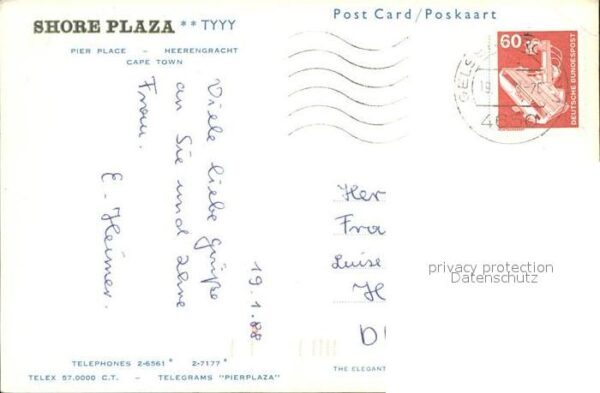 SHORE PLAZA ** TYYY
PIER PLACE – HEERENGRACHT
CAPE TOWN
Post Card / Poskaart
60
DEUTSCHE BUNDESPOST
GELS
4650
Viele liebe Grüße
an Sie und Ihre
Frau.
E. Heimer.
19.1.88
Her
Fra
Luise
H
D
privacy protection
Datenschutz
TELEPHONES 2-6561* 2-7177*
TELEX 57.0000 C.T. – TELEGRAMS "PIERPLAZA"
THE ELEGANT